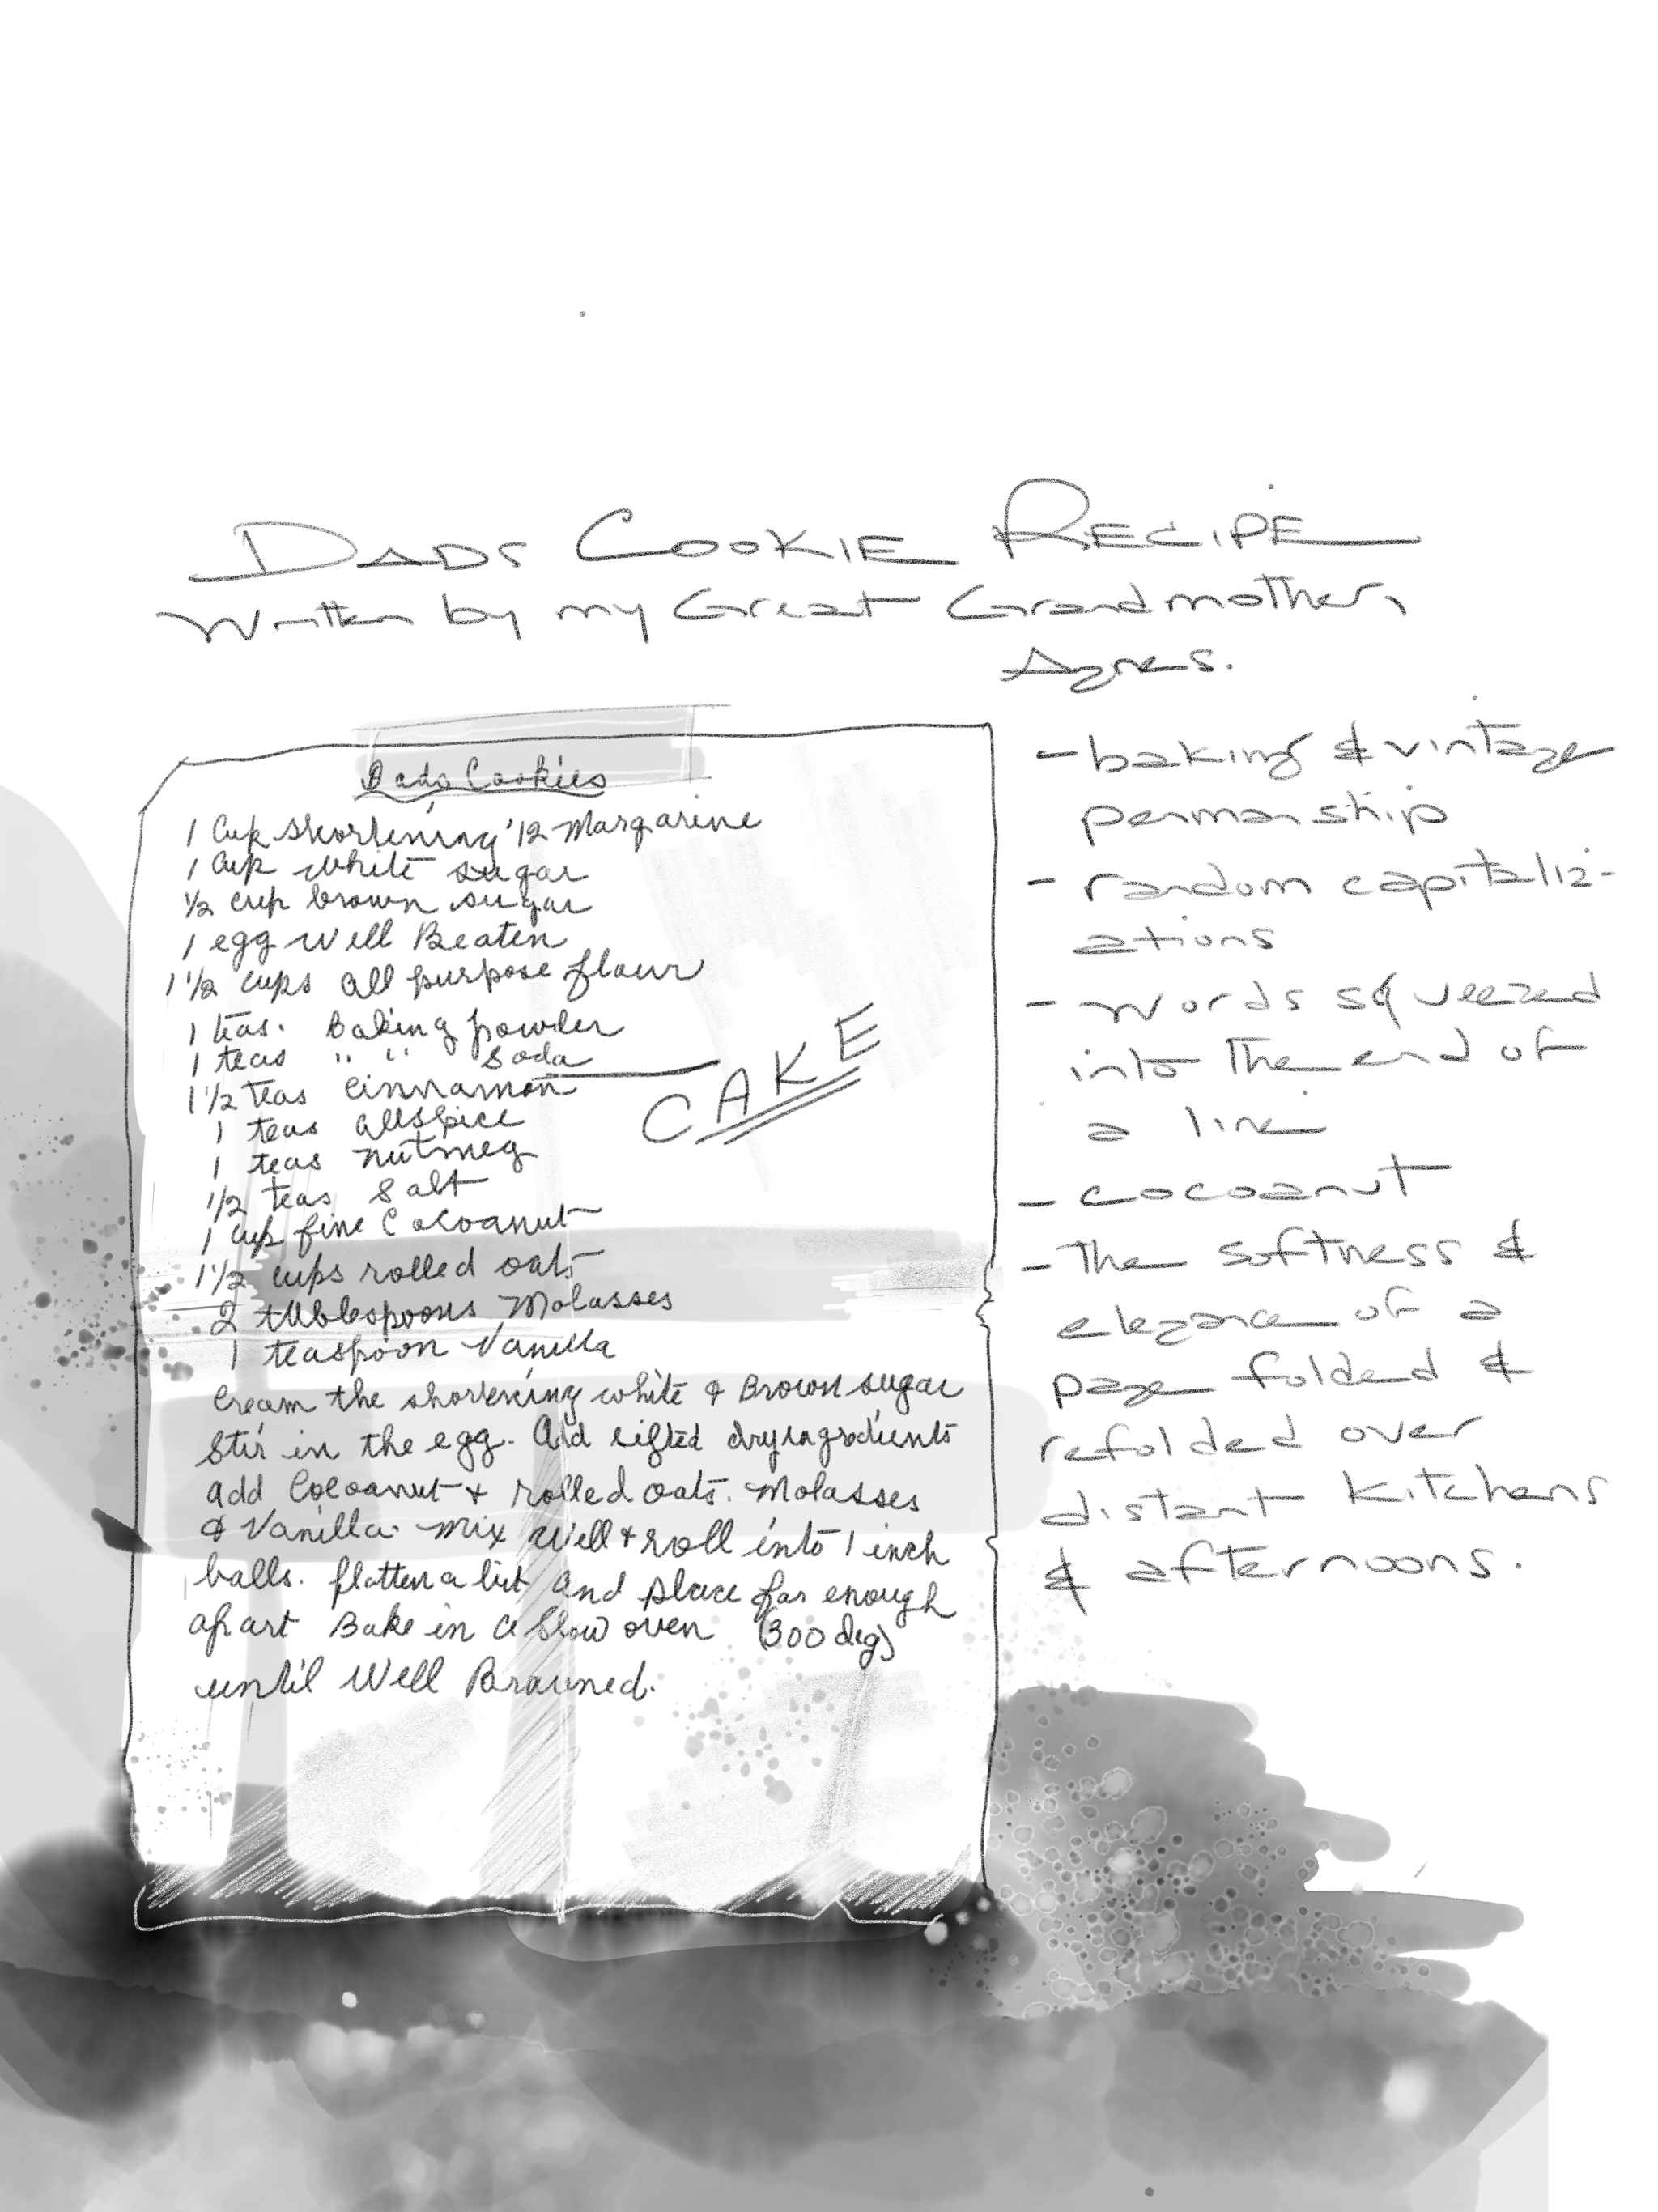 DADS COOKIE RECIPE
Written by my Great Grandmother,
Agnes.
Dads Cookies
1 Cup shortening '12 Margarine
1 Cup white sugar
1/2 cup brown sugar
1 egg Well Beaten
1 1/2 cups all purpose flour
1 teas. Baking powder
1 teas " " Soda
1 1/2 Teas Cinnamon
1 teas allspice
1 teas nutmeg
1/2 teas Salt
1 cup fine Cocoanut
1 1/2 cups rolled oats
2 tablespoons Molasses
1 teaspoon Vanilla
CAKE
Cream the shortening white & Brown sugar
Stir in the egg. Add sifted dry ingredients
add Cocoanut + rolled oats. Molasses
& Vanilla. Mix Well + roll into 1 inch
balls. flatten a bit and place far enough
apart Bake in a Slow oven (300 deg)
until Well Browned.
- baking & vintage
penmanship
- random capitaliz-
ations
- words squeezed
into the end of
a line
- cocoanut
- the softness &
elegance of a
page folded &
refolded over
distant kitchens
& afternoons.